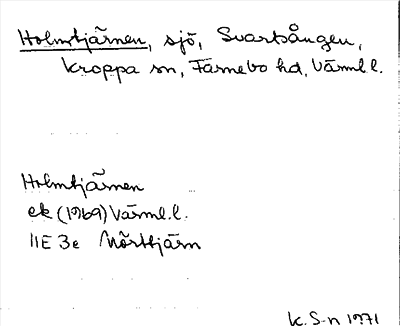 Holmtjärnen, sjö, Svartsången,
Kroppa sn, Färnebo hd, Värml.l.
Holmtjärnen
ek (1969) Värml.l.
11E 3e Mörttjärn
K. S-n 1971